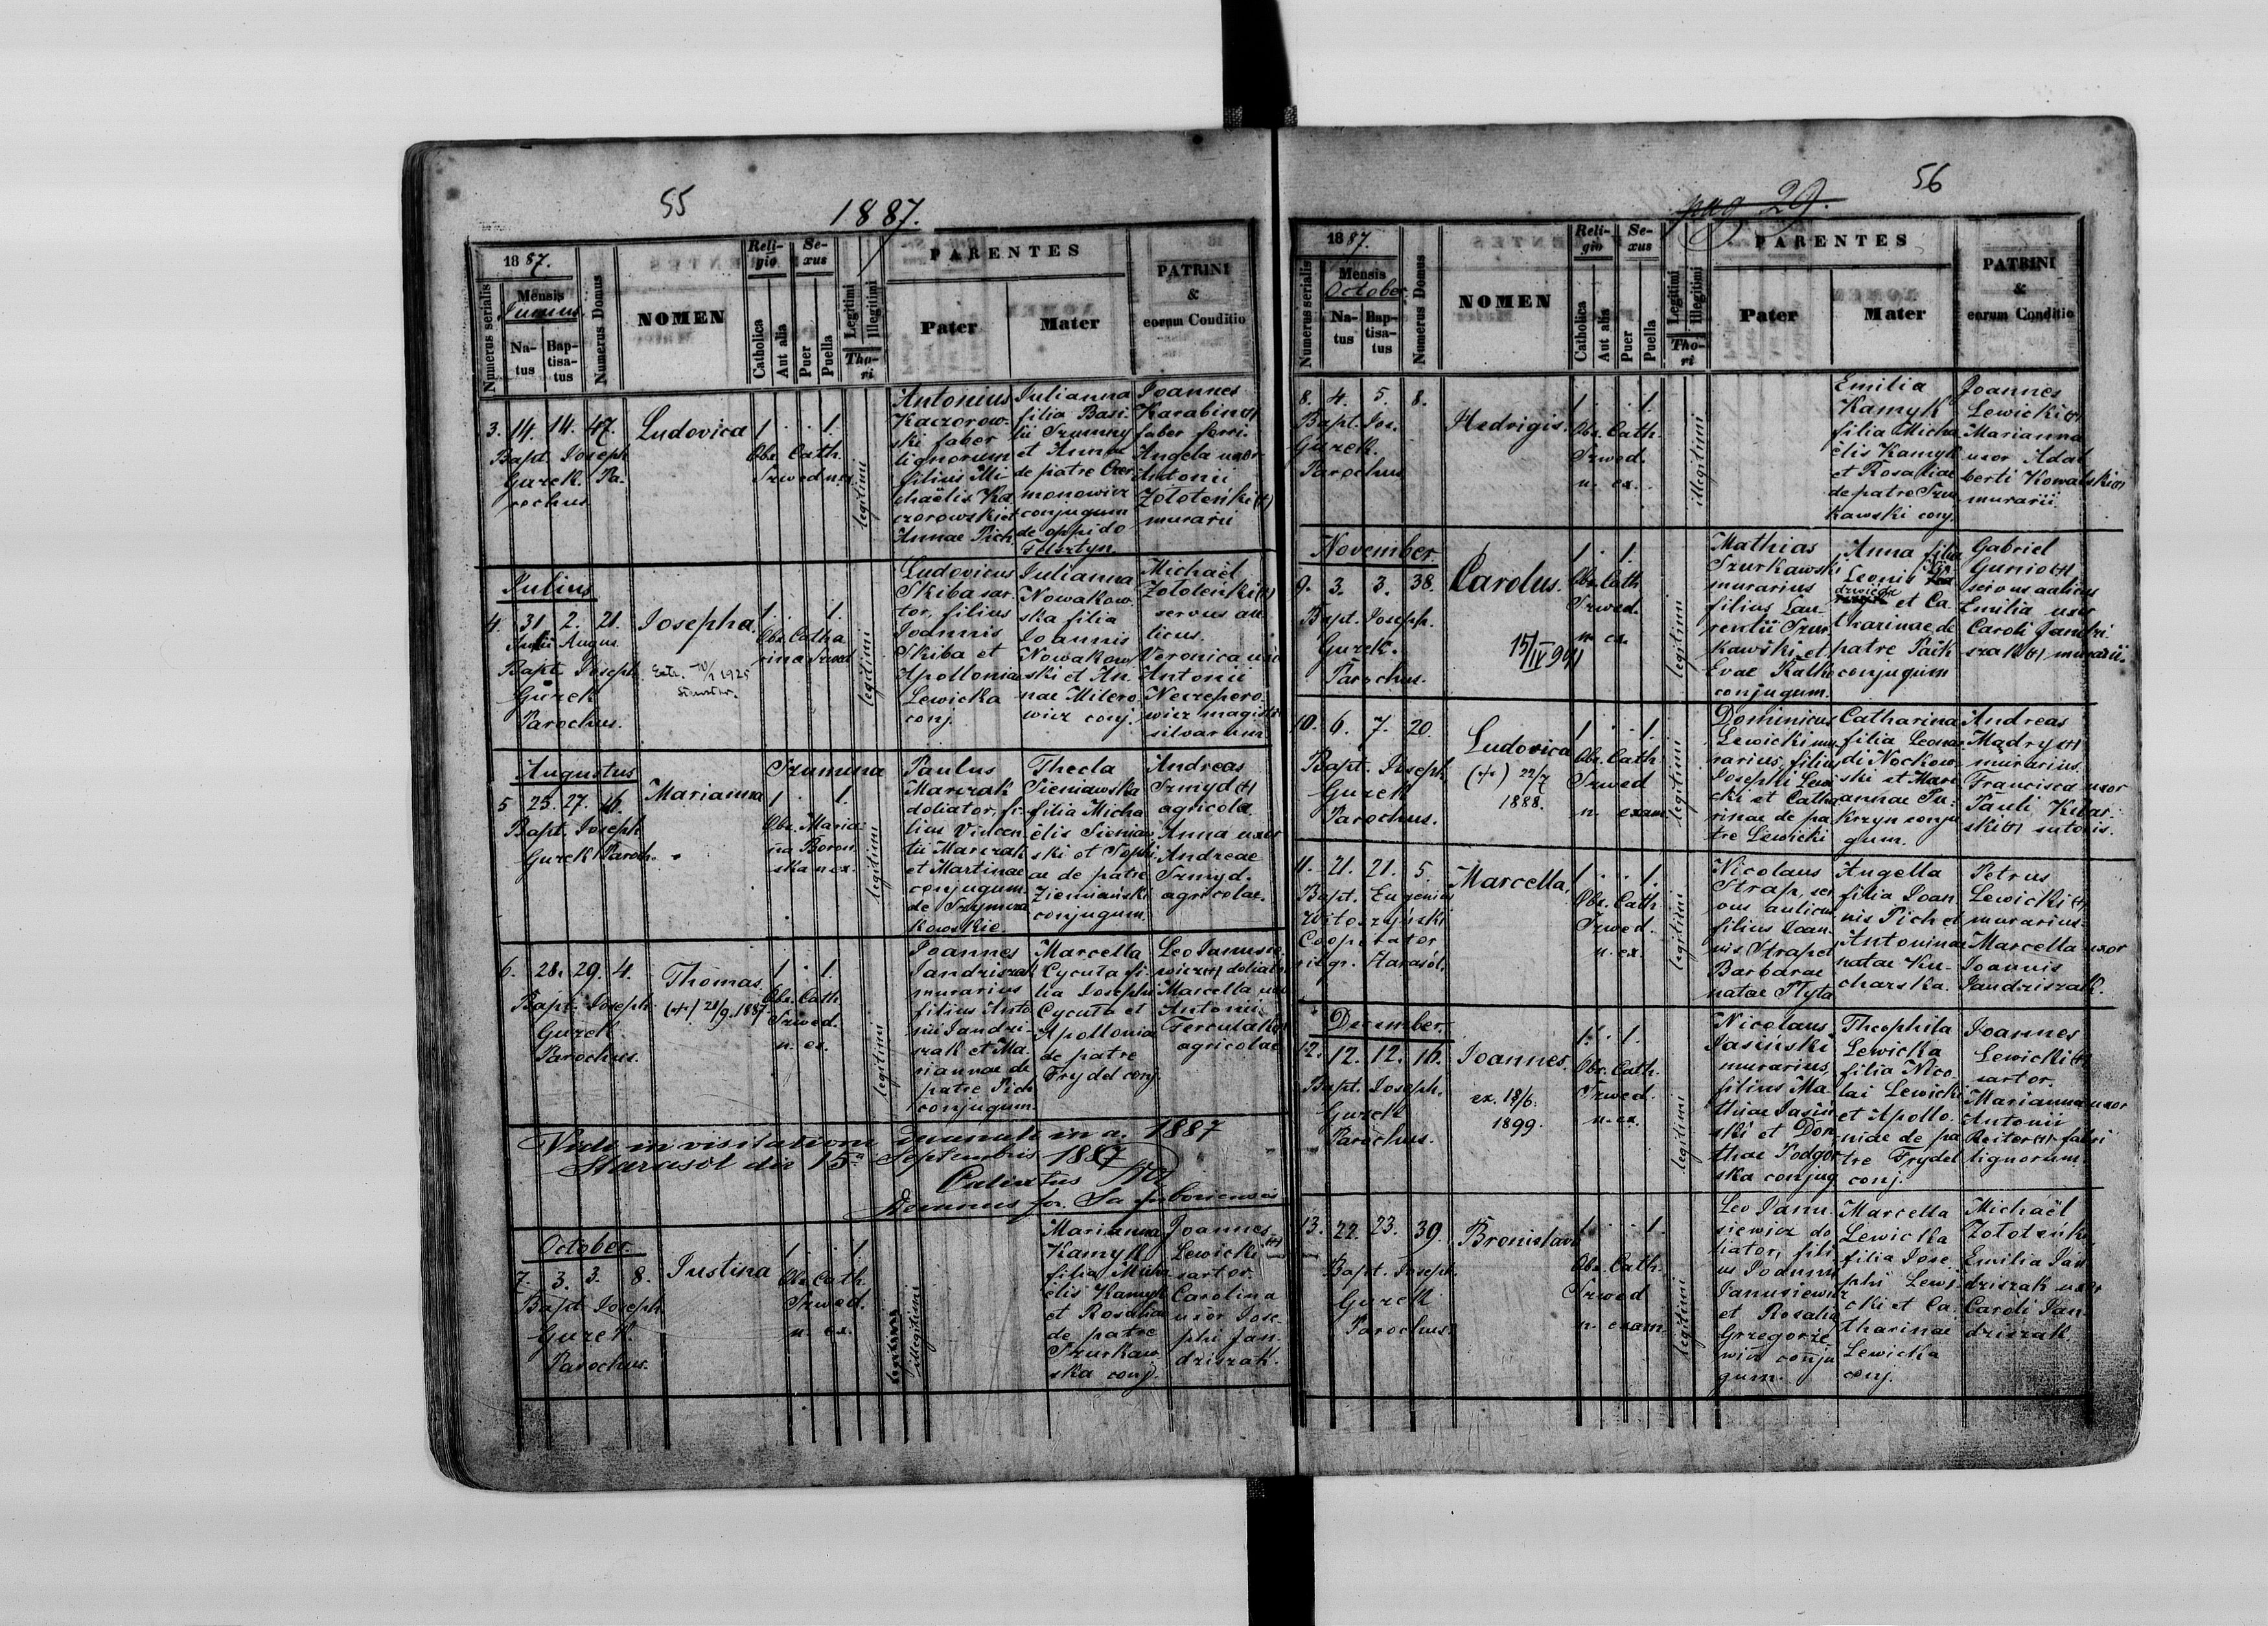 55
1887.
1887.
Mensis
Junius
Numerus serialis
Natus
Baptisatus
Numerus Domus
NOMEN
Religio
Catholica
Aut alia
Sexus
Puer
Puella
Legitimi
Illegitimi
Thori
PARENTES
Pater
Mater
PATRINI
&
eorum Conditio
3. 14. 14. 47.
Bapt. Joseph
Gurek Pa-
rochus
Ludovica
1 . . 1.
Obs. Cath.
Szwed n. ex.
legitimi
Antonius
Kaczorow-
ski faber
lignorum
filius Mi-
chaëlis Ka
czorowski et
Annae Pich.
Julianna
filia Basi-
lii Szumny
et Annae
de patre Czer
monowicz
conjugum
de oppido
Tłustyn
Joannes
Karabin (+)
faber ferri.
Angela uxor
Antonii
Zototeński (+)
murarii
Julius
4. 31. 2. 21.
Julii Augus.
Bapt. Joseph
Gurek
Parochus.
Josepha.
Extr. 10/1 1925
1. . 1.
Obs. Catha
rina Szwed
legitimi
Ludovicus
Skiba sar-
tor, filius
Joannis
Skiba et
Apollonia
Lewicka
conj.
Julianna
Nowakow-
ska filia
Joannis
Nowakow
ski et An-
nae Milero
wicz conj.
Michaël
Zototeński (+)
servus au-
licus.
Veronica uxor
Antonii
Nieczepero
wicz magistri
silvarum
Augustus
5 25. 27. 16.
Bapt. Joseph
Gurek Paroch.
Marianna
Szumina
1 . . 1.
Obs. Maria-
na Boron
ska n. ex.
legitimi
Paulus
Marczak
doliator, fi-
lius Vincen
tii Marczak
et Martinae
conjugum
de Szymcza
kowskie.
Thecla
Sieniawska
filia Micha
ëlis Sieniaw
ski et Sophi
ae de patre
Zieminiański
conjugum.
Andreas
Szmyd (+)
agricola
Anna uxor
Andreae
Szmyd.
agricolae.
6. 28. 29. 4.
Bapt. Joseph
Gurek
Parochus.
Thomas.
(+) 21/9. 1887
1 . 1.
Obs. Cath
Szwed.
n. ex.
legitimi
Joannes
Jandriszak
murarius
filius Anto
nii Jandri-
szak et Ma-
riannae de
patre Pich
conjugum.
Marcella
Cycuta fi-
lia Josephi
Cycuta et
Apollonia
de patre
Frydel conj.
Leo Janusie
wicz (+) doliator
Marcella uxor
Antonii
Ferculak (+)
agricolae
Vidi in visitatione decanali in a. 1887
Starasol die 15ª Septembris 1887
Calixtus
Decanus for. Samboriensis
October.
7. 3. 3. 8.
Bapt. Joseph
Gurek.
Parochus.
Justina
1. . . 1.
Obs. Cath.
Szwed.
n. ex.
illegitimi
Marianna
Kamyk
filia Micha
ëlis Kamyk
et Rosalia
de patre
Szurkaw-
ska conj.
Joannes
Lewicki (+)
sartor.
Carolina
uxor Jose-
phi Jan-
driszak.
pag 29.
56
1887.
Mensis
October
Numerus serialis
Natus
Baptisatus
Numerus Domus
NOMEN
Religio
Catholica
Aut alia
Sexus
Puer
Puella
Legitimi
Illegitimi
Thori
PARENTES
Pater
Mater
PATRINI
&
eorum Conditio
8. 4. 5. 8.
Bapt. Jos.
Gurek.
Parochus
Hedrigis.
1. . . 1.
Obs. Cath.
Szwed.
n. ex.
illegitimi
Emilia
Kamyk
filia Micha
ëlis Kamyk
et Rosaliae
de patre Szur
kawski conj.
Joannes
Lewicki (+)
Marianna
uxor Adal
berti Kowalski (+)
murarii.
November.
9. 3. 3. 38.
Bapt. Joseph.
Gurek.
Parochus.
Carolus.
15/IV 9
1. . 1.
Obs. Cath
Szwed.
n. ex.
legitimi
Mathias
Szurkawski
murarius
filius Lau-
rentii Szur-
kawski et
Evae Kalke
conjugum.
Anna filia
Leonis
et Ca-
tharinae de
patre Paik
conjugum
Gabriel
Gunio (+)
servus aulicus
Emilia uxor
Caroli Jandri-
szak (+) murarii.
10. 6. 7. 20.
Bapt. Joseph
Gurek
Parochus.
Ludovica
(+) 22/7
1888.
1. . . 1.
Obs. Cath
Szwed
n. exam
legitimi
Dominicus
Lewicki mu-
rarius, filius
Josephi Lewi
cki et Catha
rinae de pa
tre Lewicki
Catharina
filia Leonar
di Nockow
ski et Mari
annae Pu-
krzyn conju
gum.
Andreas
Madry (+)
murarius.
Francisca uxor
Pauli Kibar-
ski (+) sutoris.
11. 21. 21. 5.
Bapt. Eugenius
Witoszyński
Cooperator
religr. Starasól.
Marcella.
1. . . 1.
Obs. Cath.
Szwed.
n. ex.
legitimi
Nicolaus
Strap, ser
vus aulicus
filius Joan-
nis Strap et
Barbarae
natae Płyta
Angella
filia Joan
nis Pich et
Antoninae
natae Ku-
charska.
Petrus
Lewicki (+)
murarius.
Marcella uxor
Joannis
Jandriszak.
December.
12. 12. 12. 16.
Bapt. Joseph.
Gurek
Parochus.
Joannes.
ex. 18/6.
1899.
1. . 1.
Obs. Cath.
Szwed.
n. ex.
legitimi
Nicolaus
Jasiński
murarius,
filius Ma-
thiae Jasiń
ski et Doro
thae Podgór
ska conjug
Theophila
Lewicka
filia Nico-
lai Lewicki
et Apollo-
niae de pa
tre Frydel
conj.
Joannes
Lewicki (+)
sartor.
Marianna uxor
Antonii
Reitor (+) fabri
lignorum.
13. 22. 23. 39.
Bapt. Joseph.
Gurek
Parochus.
Bronislava
1. . . 1.
Obs. Cath.
Szwed
n. exam
legitimi
Leo Janu-
siewicz do
liator, fili-
us Joannis
Janusiewicz
et Rosalia
Grzegorze
wicz conju
gum.
Marcella
Lewicka
filia Jose-
phi Lewi-
cki et Ca-
tharinae
Lewicka
conj.
Michaël
Zototeński
Emilia Jan
driszak uxor
Caroli Jan-
driszak.